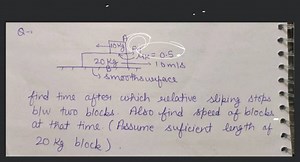 Q→
10 kg
μk = 0.5
20 kg
10 m/s
smooth surface
find time after which relative sliping stops
b/w two blocks. Also find speed of blocks
at that time ( Assume suficient length of
20 kg block ) .